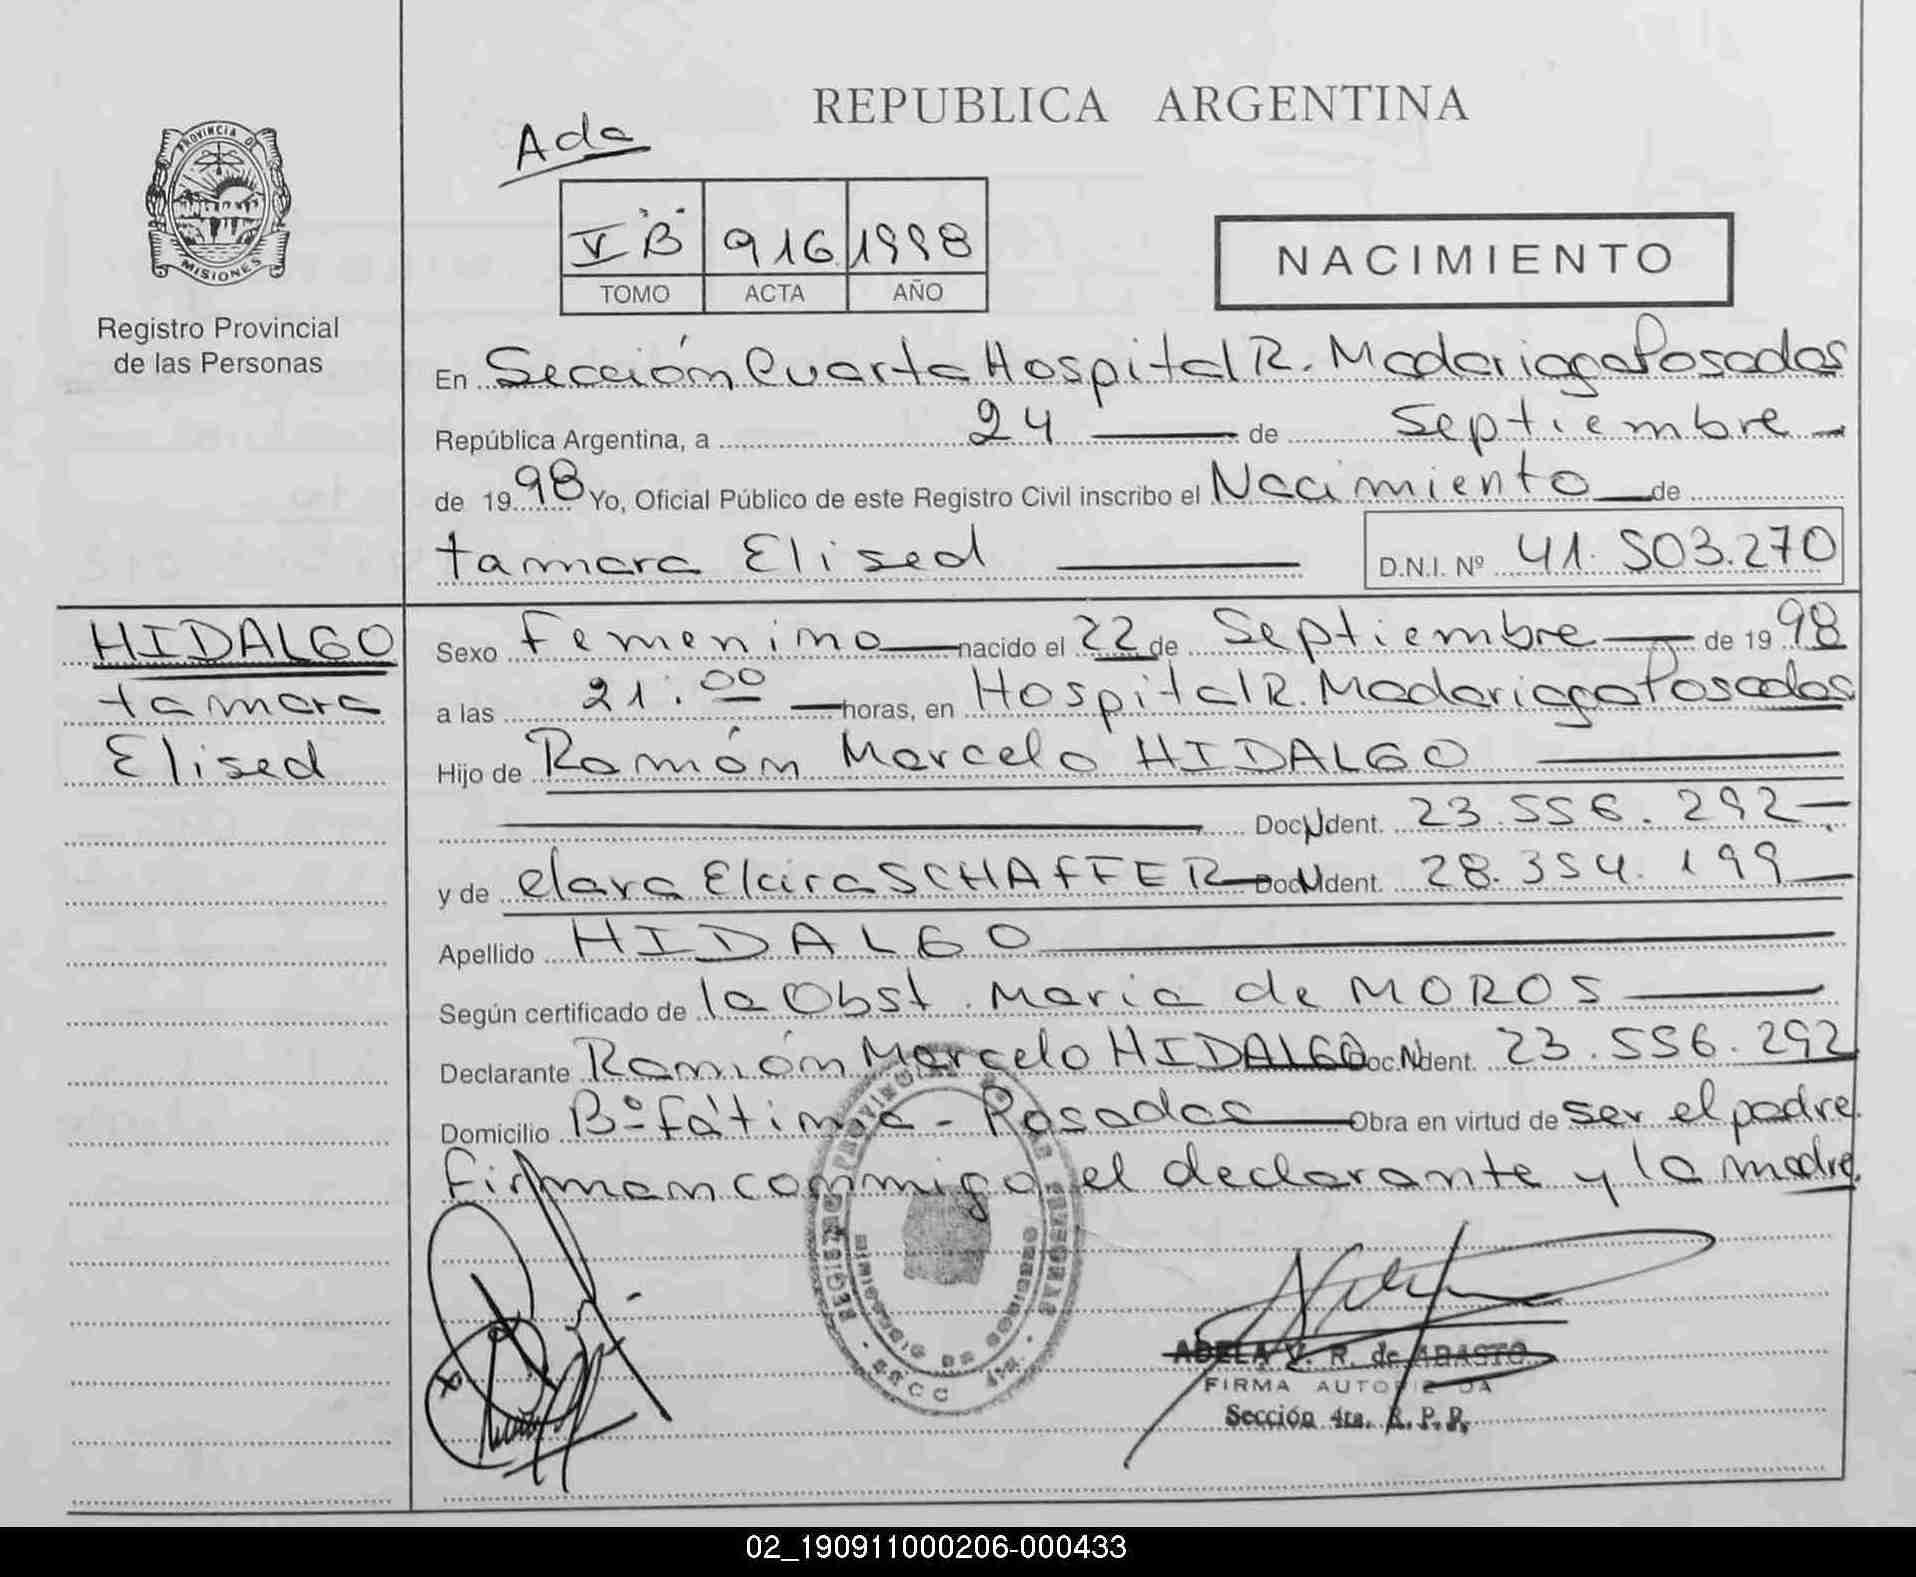 REPUBLICA ARGENTINA
Ada
PROVINCIA DE
MISIONES
Registro Provincial
de las Personas
V "B" 916 1998
TOMO ACTA AÑO
NACIMIENTO
En Sección Cuarta Hospital R. Madariaga Posadas
República Argentina, a 24 de Septiembre
de 1998 Yo, Oficial Público de este Registro Civil inscribo el Nacimiento de
tamara Elised D.N.I. Nº 41.503.270
HIDALGO
tamara
Elised
Sexo femenino nacido el 22 de Septiembre de 1998
a las 21:00 horas, en Hospital R. Madariaga Posadas
Hijo de Ramón Marcelo HIDALGO
Doc. Ident. 23.556.292
y de Clara SCHAFFER Doc. Ident. 28.354.199
Apellido HIDALGO
Según certificado de la Obst. Maria de MOROS
Declarante Ramón Marcelo HIDALGO Doc. Ident. 23.556.292
Domicilio Bº fátima - Posadas Obra en virtud de ser el padre.
firman conmigo el declarante y la madre.
REGISTRO PROVINCIAL DE LAS PERSONAS
MISIONES
ADELA V. R. de ABASTO
FIRMA AUTORIZADA
Sección 4ta. R. P. P.
02_190911000206-000433